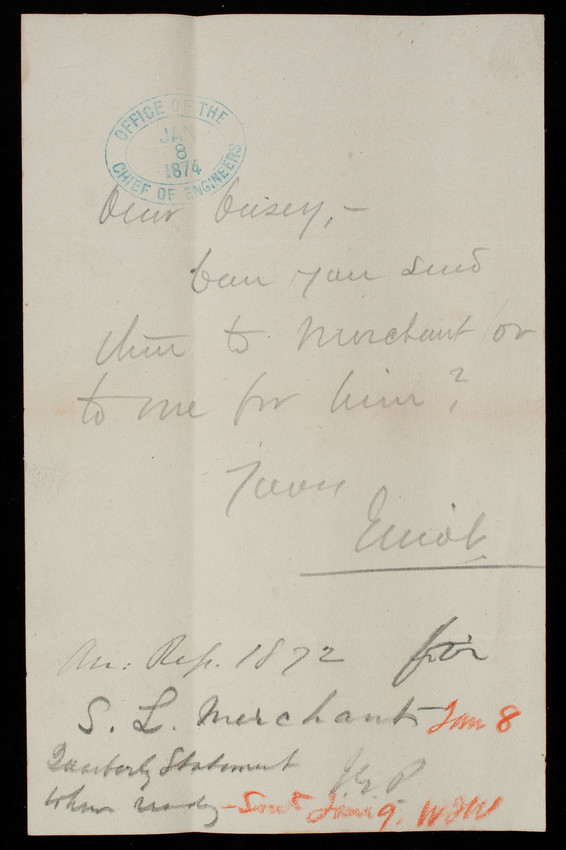 OFFICE OF THE
JAN
8
1874
CHIEF OF ENGINEERS
Dear Casey,-
Can you send
them to Merchant or
to me for him?
Yours
Elliot
An: Rep. 1872 for
S. L. Merchant Jan 8
Quarterly Statement
when ready - Sent Jan 9. WJW